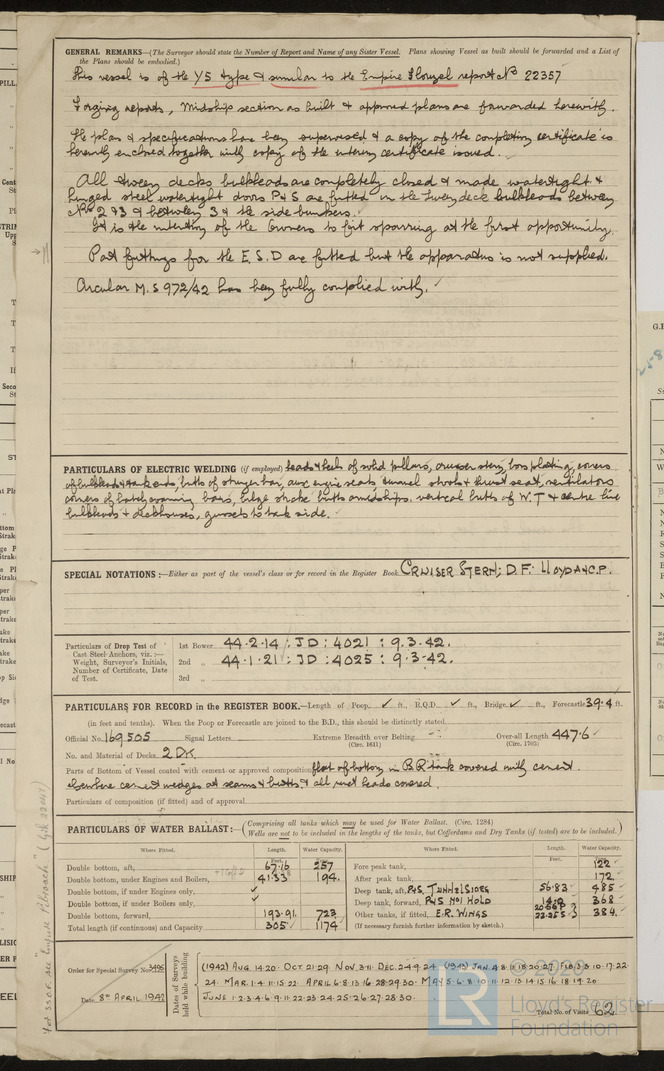 GENERAL REMARKS—(The Surveyor should state the Number of Report and Name of any Sister Vessel. Plans showing Vessel as built should be forwarded and a List of
the Plans should be embodied.)
This vessel is of the Y5 type & similar to the Empire report No 22357
Forging reports, Midship section as built & approved plans are forwarded herewith.
The plan & specifications has been supervised & a copy of the completion certificate is
herewith enclosed together with copy of the interim certificate issued.
All tween decks bulkheads are completely closed & made watertight &
hinged steel watertight doors P & S are fitted in the tween deck bulkheads between
Nos 2 & 3 & between 3 & the side bunkers.
It is the intention of the Owners to fit sparring at the first opportunity.
Part fittings for the E.S.D are fitted but the apparatus is not supplied.
Circular M.S 972/42 has been fully complied with.
PARTICULARS OF ELECTRIC WELDING (if employed) heads & heels of solid pillars, cruiser stern, boss plating, covers
of bulkheads & tank ends, butts of stringer bar, aux engine seats tunnel stools & thrust seat, ventilators
corners of hatch coaming bars, bilge strake butts amidships. vertical butts of W.T & centre line
bulkheads & deckhouses, gussets to tank side.
SPECIAL NOTATIONS:—Either as part of the vessel's class or for record in the Register Book. CRUISER STERN; D.F. LLOYDS A & C.P.
Particulars of Drop Test of
Cast Steel Anchors, viz.:—
Weight, Surveyor's Initials,
Number of Certificate, Date
of Test.
1st Bower 44-2-14 : JD : 4021 : 9.3-42.
2nd „ 44-1-21 : JD : 4025 : 9.3-42.
3rd „
PARTICULARS FOR RECORD in the REGISTER BOOK.—Length of Poop ✓ ft., R.Q.D. ✓ ft., Bridge ✓ ft., Forecastle 39.4 ft.
(in feet and tenths). When the Poop or Forecastle are joined to the B.D., this should be distinctly stated
Official No. 169505 Signal Letters. Extreme Breadth over Belting (Circ. 1611) Over-all Length 447.6 (Circ. 1703)
No. and Material of Decks 2 DK
Parts of Bottom of Vessel coated with cement or approved composition flat of bottom in B.R tank covered with cement.
elsewhere cement wedges at seams & butts & all rivet heads covered.
Particulars of composition (if fitted) and of approval
PARTICULARS OF WATER BALLAST:—(Comprising all tanks which may be used for Water Ballast. (Circ. 1284)
Wells are not to be included in the lengths of the tanks, but Cofferdams and Dry Tanks (if tested) are to be included.)
Where Fitted. Length. Water Capacity. Where Fitted. Length. Water Capacity.
Feet. Feet.
Double bottom, aft, 67.16 257
Double bottom, under Engines and Boilers, 41.33 194
Double bottom, if under Engines only, ✓
Double bottom, if under Boilers only, ✓
Double bottom, forward, 193.91 723
Total length (if continuous) and Capacity 305 1174
Fore peak tank, 122
After peak tank, 172
Deep tank, aft, P&S, TUNNEL SIDES 56.83 485
Deep tank, forward, P&S NO 1 HOLD 368
Other tanks, if fitted, E.R. WINGS 384
(If necessary furnish further information by sketch.)
Order for Special Survey No. 3495
Date 8th APRIL 1942
Dates of Surveys held while building
(1942) AUG. 14.20. OCT 21.29. NOV. 3.11. DEC. 2.4.9.24. (1943) JAN 4.8.11.18.20.27. FEB 3.3.10.17.22
24. MAR. 1.4.11.15.22. APRIL 6.8.13.16.28.29.30. MAY 5.6.8.10.11.12.13.14.15.16.18.19.20
JUNE 1.2.3.4.6.9.11.22.23.24.25.26.27.28.30.
Total No. of Visits 62
© 2020
LR
Lloyd's Register
Foundation